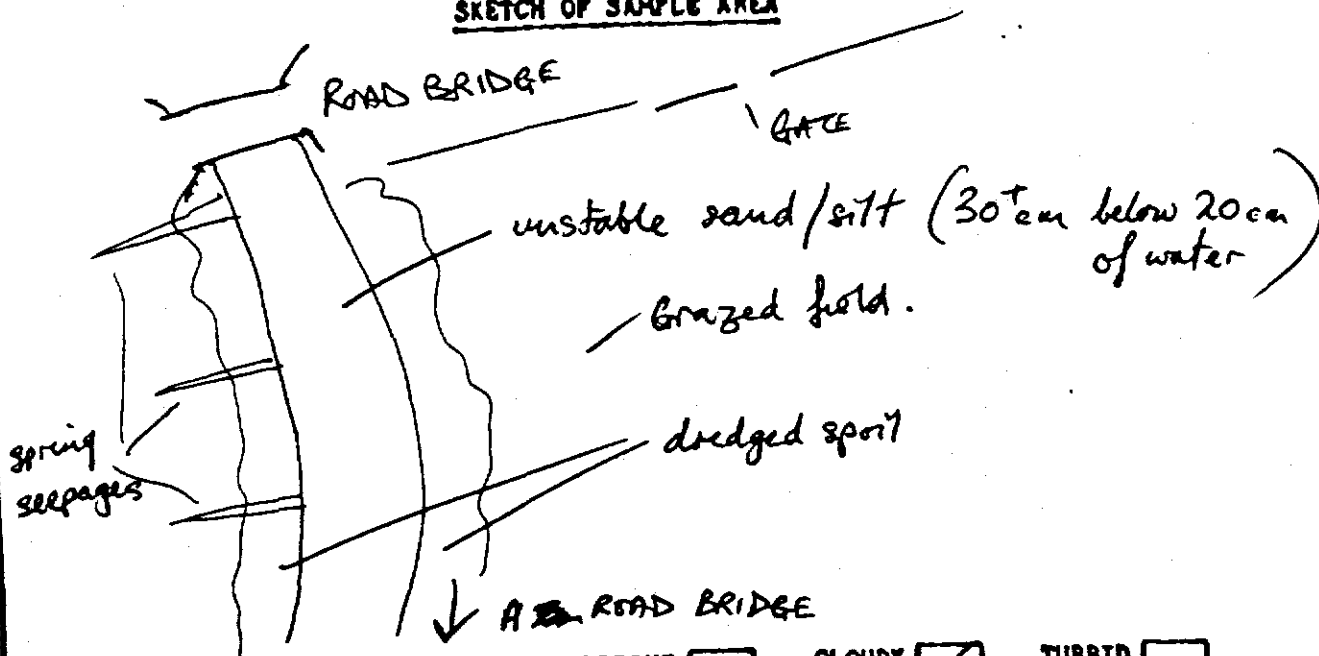 SKETCH OF SAMPLE AREA
ROAD BRIDGE
GATE
unstable sand/silt (30+cm below 20cm
of water)
Grazed field.
dredged spoil
spring
seepages
A ROAD BRIDGE
CLOUDY TURBID